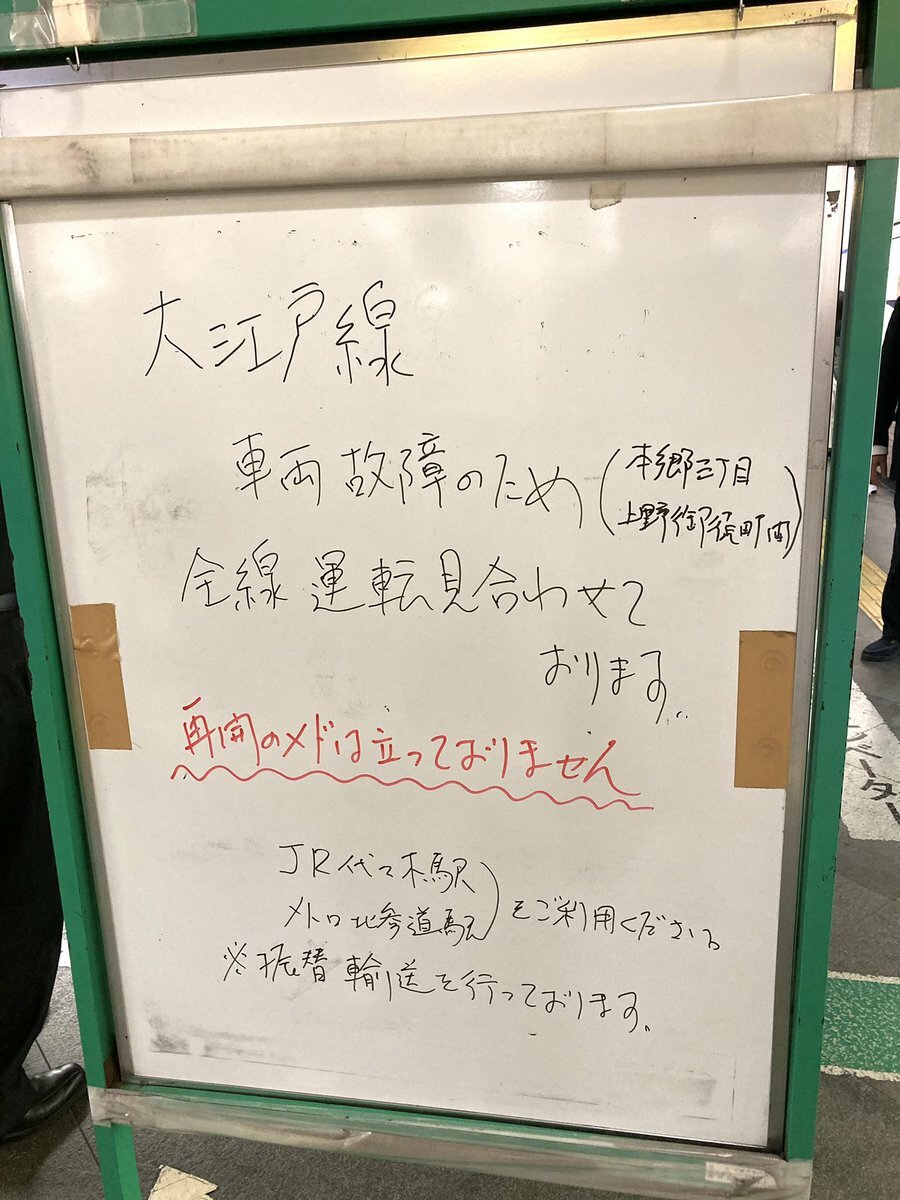 大江戸線
車両故障のため(本郷三丁目
上野御徒町間)
全線運転見合わせて
おります。
再開のメドは立っておりません
JR代々木駅
メトロ北参道駅)をご利用ください
※振替輸送を行っております。